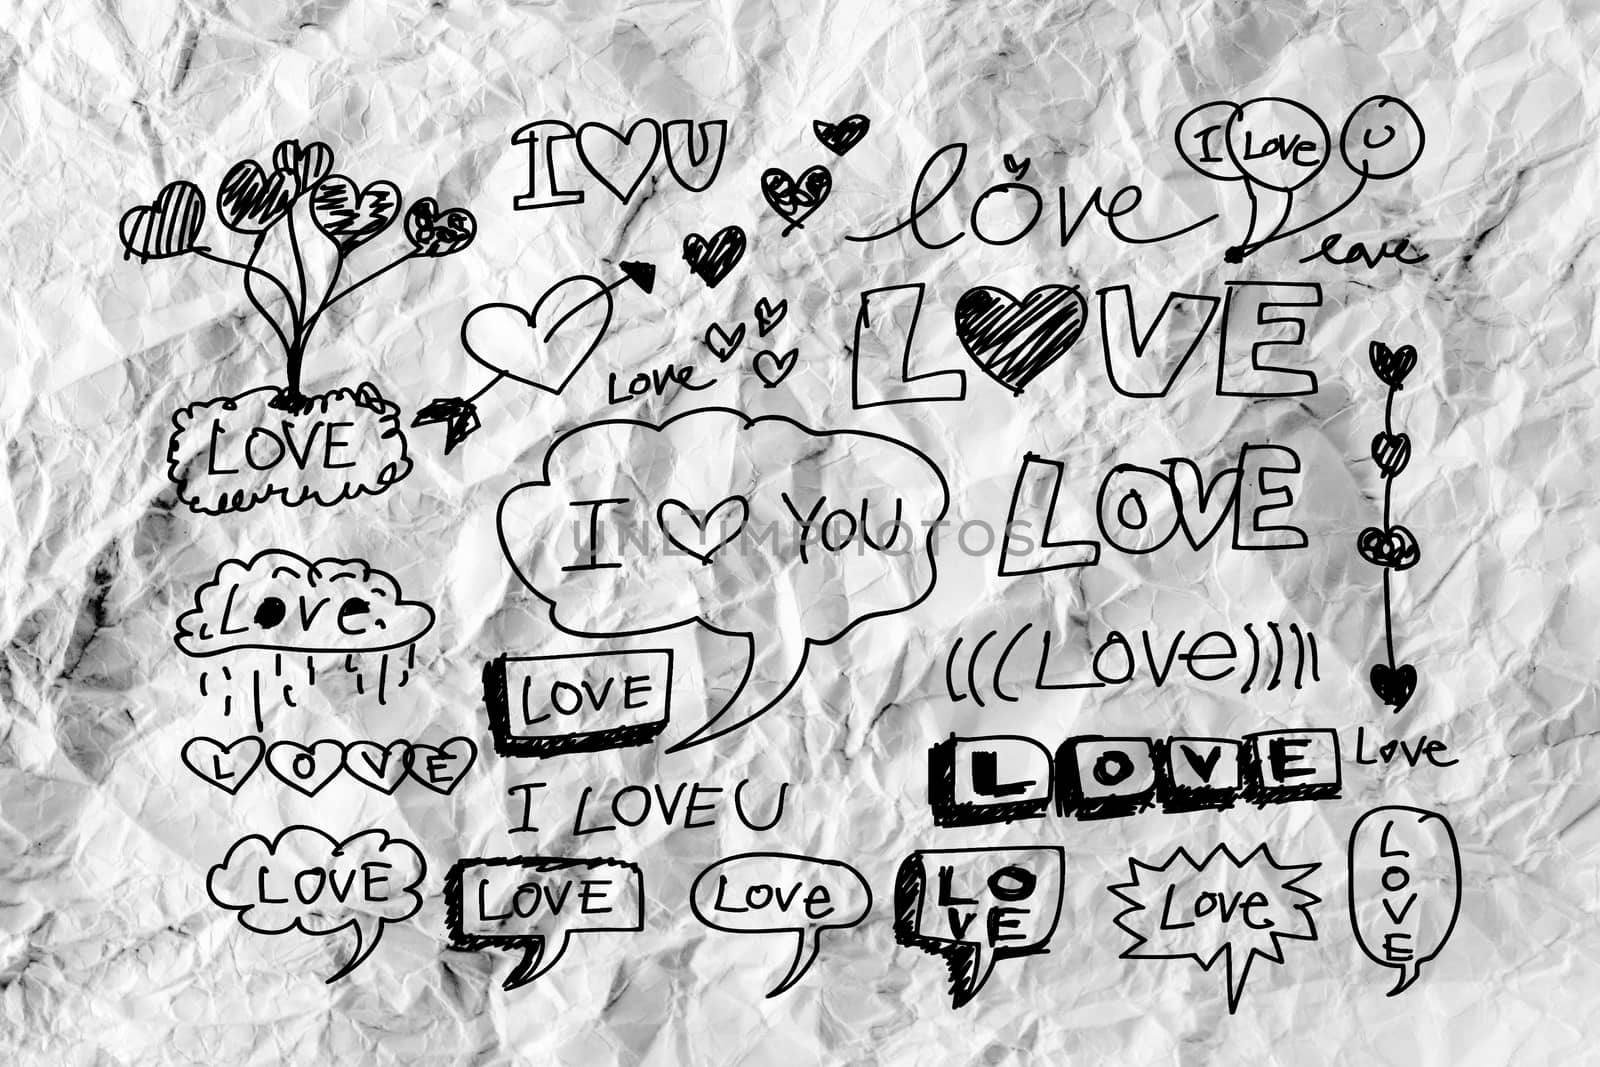 I U
love
I Love U
love
L VE
Love
LOVE
I YOU
LOVE
UNLIMPHOTOS
Love
(((Love))))
LOVE
LOVE
LOVE
Love
I LOVE U
LOVE
LOVE
Love
LO
VE
Love
LOVE